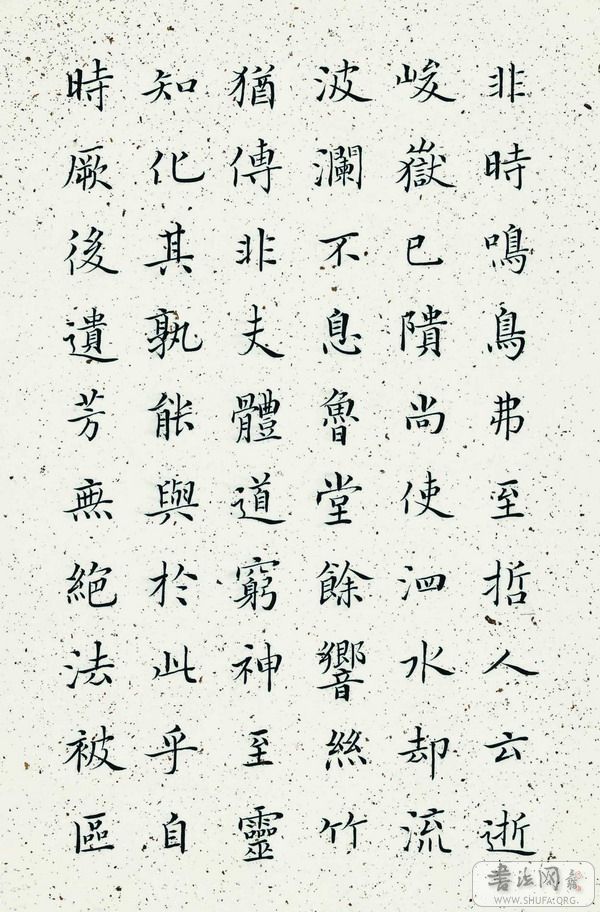 非時鳴鳥弗至哲人云逝
峻嶽已隤尚使泗水却流
波瀾不息魯堂餘響絲竹
猶傳非夫體道窮神至靈
知化其孰能與於此乎自
時厥後遺芳無絕法被區
書法网
WWW.SHUFA.ORG.